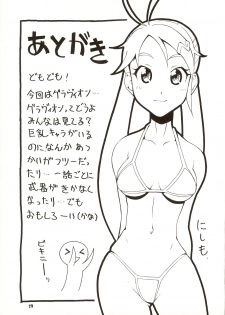 あとがき
どもども!
今回はグラヴィオン…
グラヴィオンってどうよ
みんなは見てる?
巨乳キャラがいる
のになんか あっ
かいがフツーだっ
たり… 一話ごとに
武器がきかなく
なったり…でも
おもしろーい(かな)
ビキニーッ
にしも。
19